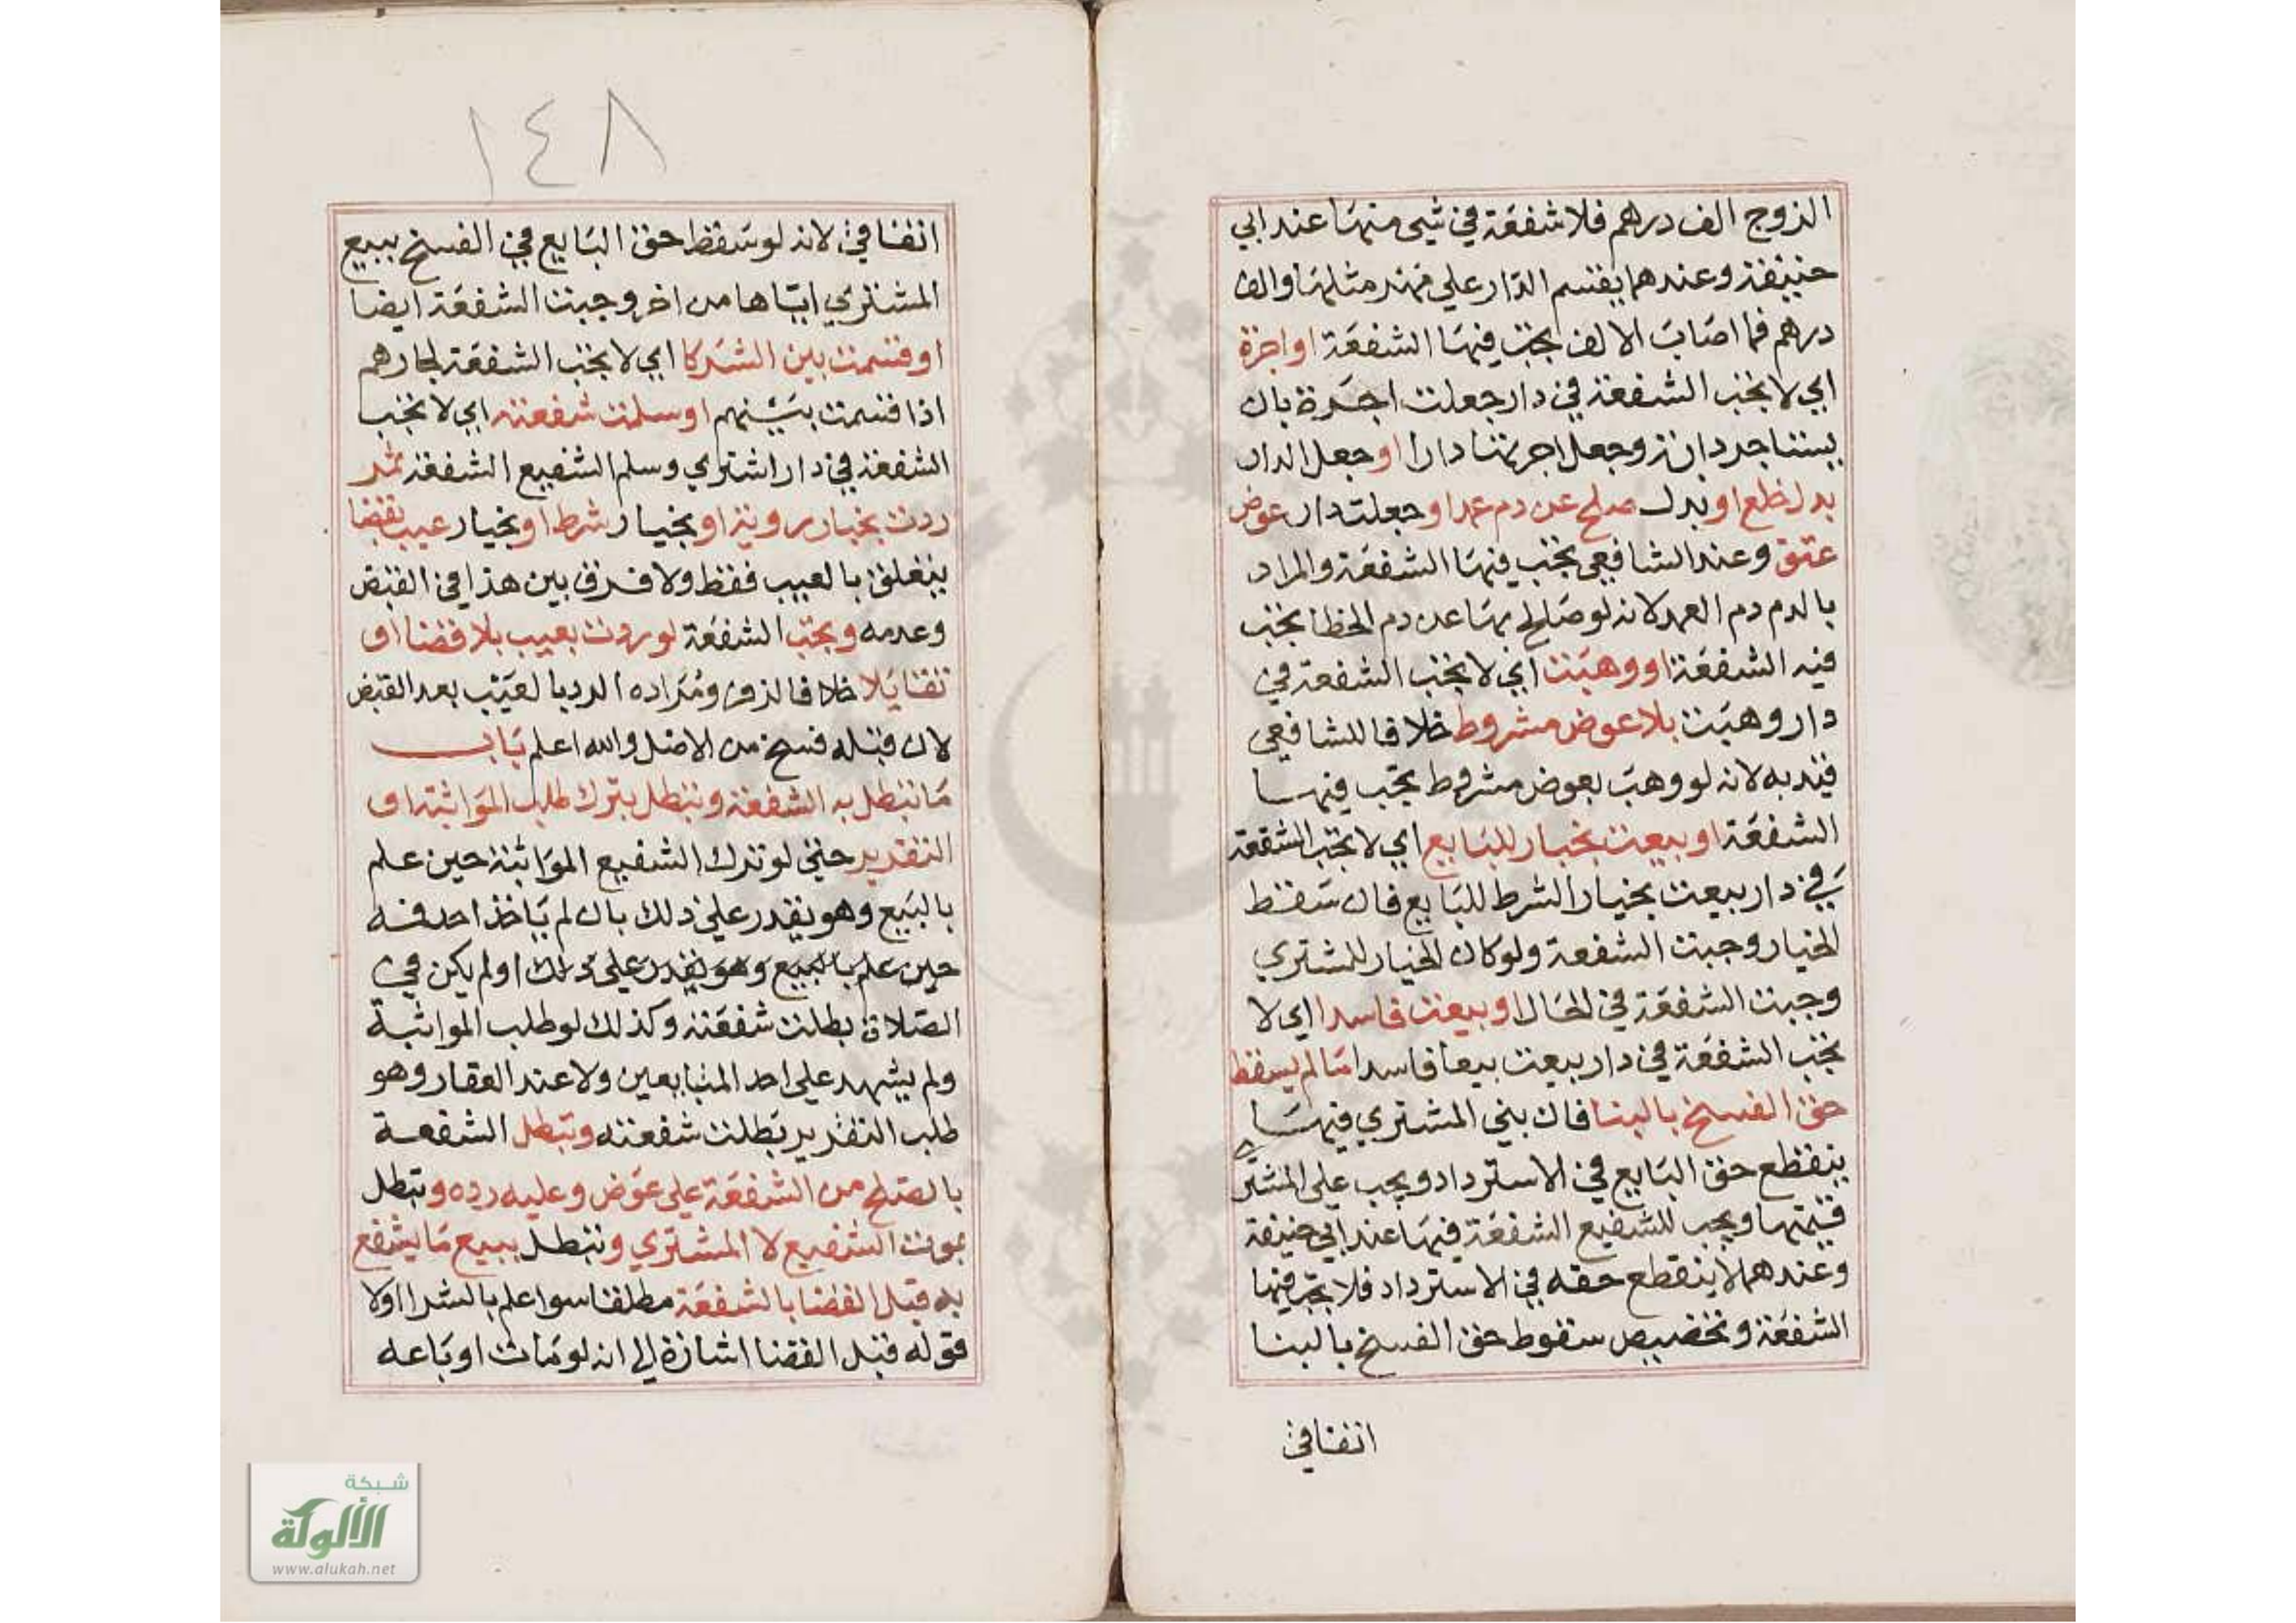 الزوج الف درهم فلا شفعة في شي منها عند ابي
حنيفة وعندهما يقسم الدار علي مهر مثلها والف
درهم فما اصاب الالف يجب فيها الشفعة او اجرة
اي لا تجب الشفعة في دار جعلت اجرة بان
وجعل اجرتها دارا او جعل الدار
بدل خلع او بدل صلح عن دم عمد او جعلت دار عوض
عتق وعند الشافعي تجب فيها الشفعة والمراد
بالدم دم العمد لانه لو صالح بها عن دم الخطا تجب
فيه الشفعة او وهبت اي لا تجب الشفعة في
دار وهبت بلا عوض مشروط خلافا للشافعي
قيد به لانه لو وهب بعوض مشروط تجب فيها
الشفعة او بيعت بخيار للبايع اي لا تجب الشفعة
في دار بيعت بخيار الشرط للبايع فان سقط
الخيار وجبت الشفعة ولو كان الخيار للمشتري
وجبت الشفعة في الحال او بيعت فاسدا اي لا
تجب الشفعة في دار بيعت بيعا فاسدا ما لم يسقط
حق الفسخ بالبنا فان بني المشتري فيها
ينقطع حق البايع في الاسترداد ويجب علي المشتر
قيمتها ويجب للشفيع الشفعة فيها عند ابي حنيفة
وعندهما لا ينقطع حقه في الاسترداد فلا تجب فيها
الشفعة وتخصيص سقوط حق الفسخ بالبنا
اتفاقي
١٤٨
اتفاقي لانه لو سقط حق البايع في الفسخ ببيع
المشتري اياها من اخر وجبت الشفعة ايضا
او قسمت بين الشركا اي لا تجب الشفعة لجارهم
اذا قسمت بينهم او سلمت شفعته اي لا تجب
الشفعة في دار اشتري وسلم الشفيع الشفعة ثم
ردت بخيار روية او بخيار شرط او بخيار عيب بقضا
يتعلق بالعيب فقط ولا فرق بين هذا في القبض
وعدمه وتجب الشفعة لو ردت بعيب بلا قضا او
تقايلا خلافا لزفر ومراده الرد بالعيب بعد القبض
لان قبله فسخ من الاصل والله اعلم باب
ما تبطل به الشفعة وتبطل بترك طلب المواثبة او
التقرير حتي لو ترك الشفيع المواثبة حين علم
بالبيع وهو يقدر علي ذلك بان لم ياخذ احد فمه
حين علم بالبيع وهو يقدر علي ذلك او لم يكن في
الصلاة بطلت شفعته وكذلك لو طلب المواثبة
ولم يشهد علي احد المتبايعين ولا عند العقار وهو
طلب التقرير بطلت شفعته وتبطل الشفعة
بالصلح من الشفعة علي عوض وعليه رده وتبطل
بموت الشفيع لا المشتري وتبطل ببيع ما يشفع
به قبل القضا بالشفعة مطلقا سوا علم بالشرا او لا
قوله قبل القضا اشارة الي انه لو مات او باعه
شبكة
الألوكة
www.alukah.net